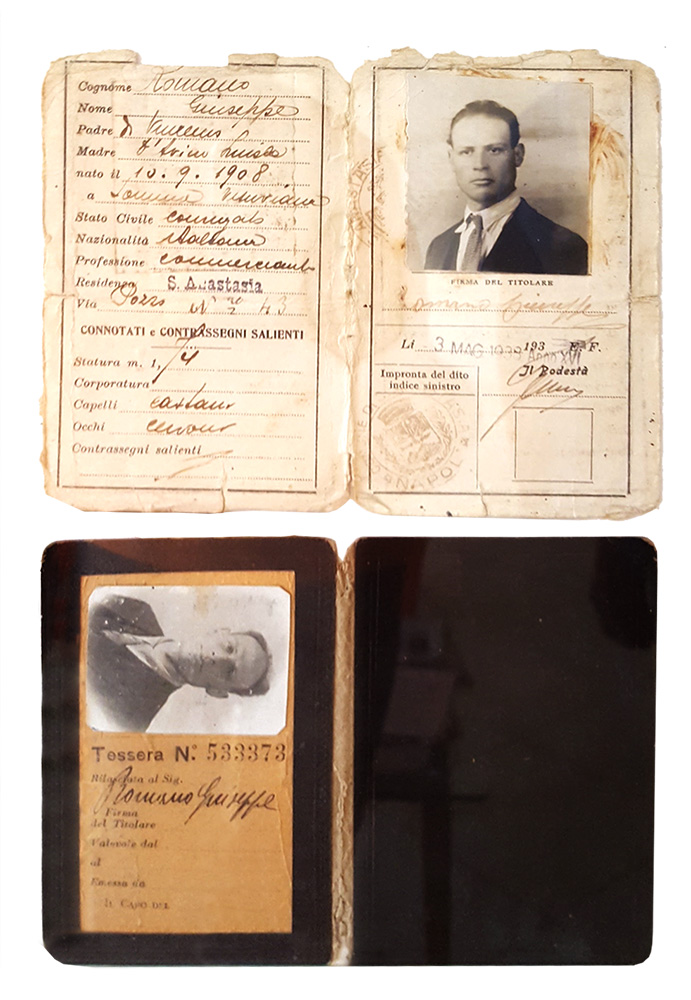 Cognome Romano
Nome Giuseppe
Padre di Vincenzo
Madre D'Avino Luisa
nato il 10. 9. 1908
a Somma Vesuviana
Stato Civile coniugato
Nazionalità italiana
Professione commerciante
Residenza S. Anastasia
Via Pozzo N° 43
CONNOTATI e CONTRASSEGNI SALIENTI
Statura m. 1, 74
Corporatura
Capelli castani
Occhi
Contrassegni salienti
FIRMA DEL TITOLARE
Romano Giuseppe
Li 3 MAG 193 F.
Anno XVI
Il Podestà
Impronta del dito
indice sinistro
NAPOLI
Tessera N.° 533373
Rilasciata al Sig.
Romano Giuseppe
Firma
del Titolare
Valevole dal
al
Emessa da
IL CAPO DEL